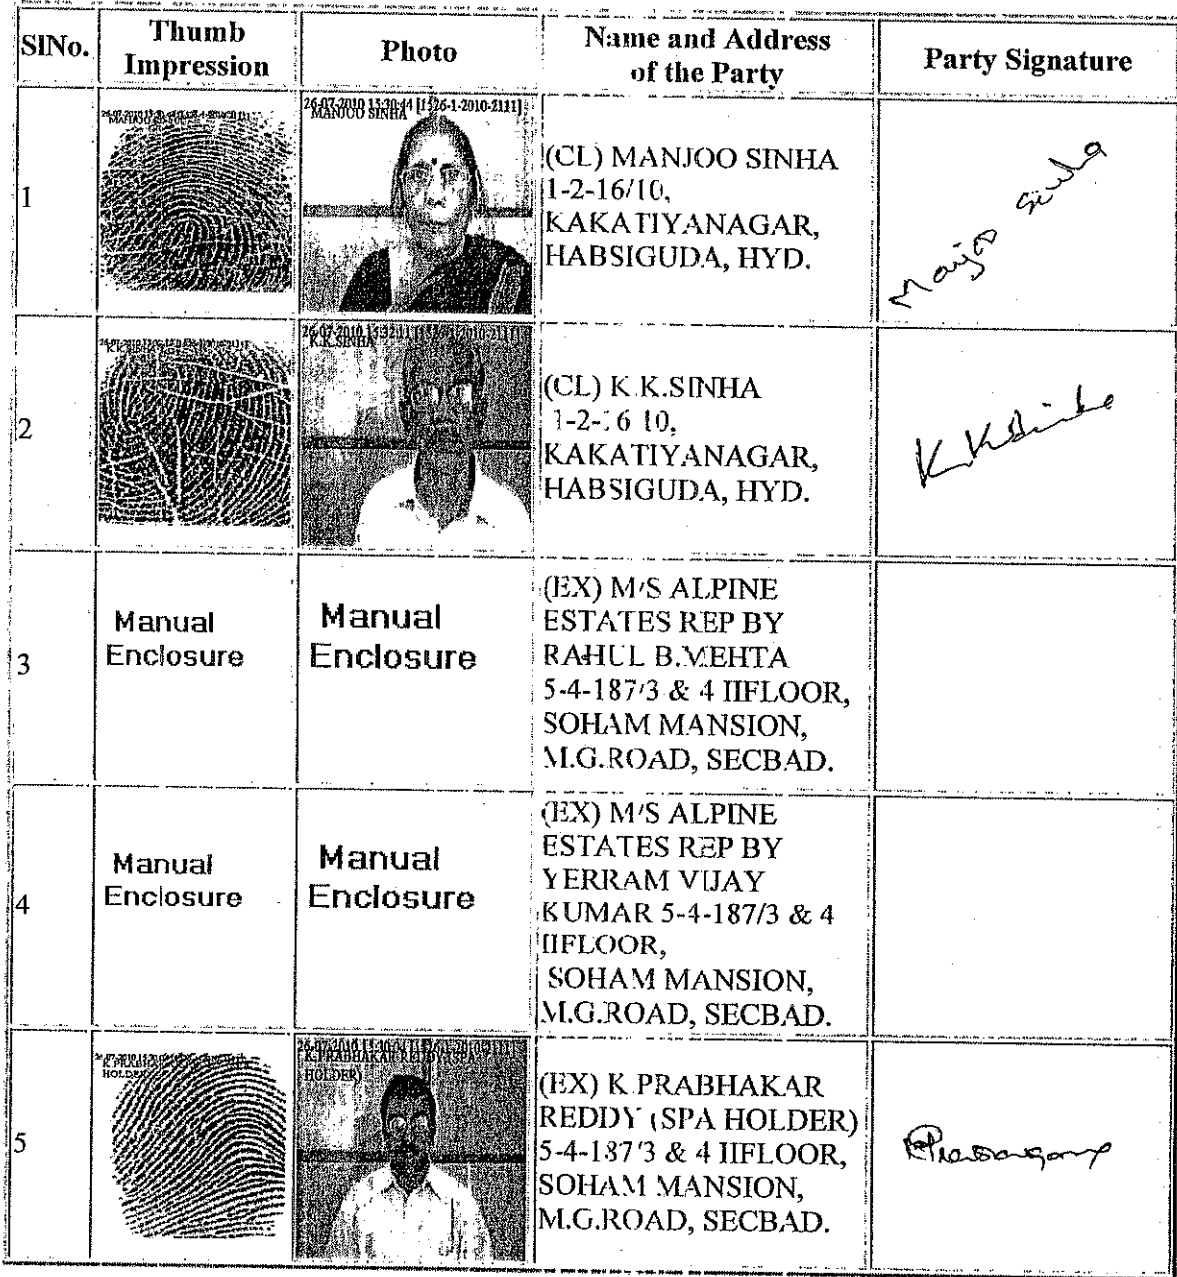 SlNo.
Thumb
Impression
Photo
Name and Address
of the Party
Party Signature
1
MANJOO SINHA
26-07-2010 13:30:44 [1526-1-2010-2111]
MANJOO SINHA
(CL) MANJOO SINHA
1-2-16/10,
KAKATIYANAGAR,
HABSIGUDA, HYD.
Manjoo Sinha
2
K.K.SINHA
26-07-2010 13:32:11 [1526-1-2010-2111]
K.K.SINHA
(CL) K.K.SINHA
1-2-16 10,
KAKATIYANAGAR,
HABSIGUDA, HYD.
K.K.Sinha
3
Manual
Enclosure
Manual
Enclosure
(EX) M/S ALPINE
ESTATES REP BY
RAHUL B.MEHTA
5-4-187/3 & 4 IIFLOOR,
SOHAM MANSION,
M.G.ROAD, SECBAD.
4
Manual
Enclosure
Manual
Enclosure
(EX) M/S ALPINE
ESTATES REP BY
YERRAM VIJAY
KUMAR 5-4-187/3 & 4
IIFLOOR,
SOHAM MANSION,
M.G.ROAD, SECBAD.
5
HOLDER)
26-07-2010 13:30:44 [1526-1-2010-2111]
K.PRABHAKAR REDDY(SPA
HOLDER)
(EX) K.PRABHAKAR
REDDY (SPA HOLDER)
5-4-187/3 & 4 IIFLOOR,
SOHAM MANSION,
M.G.ROAD, SECBAD.